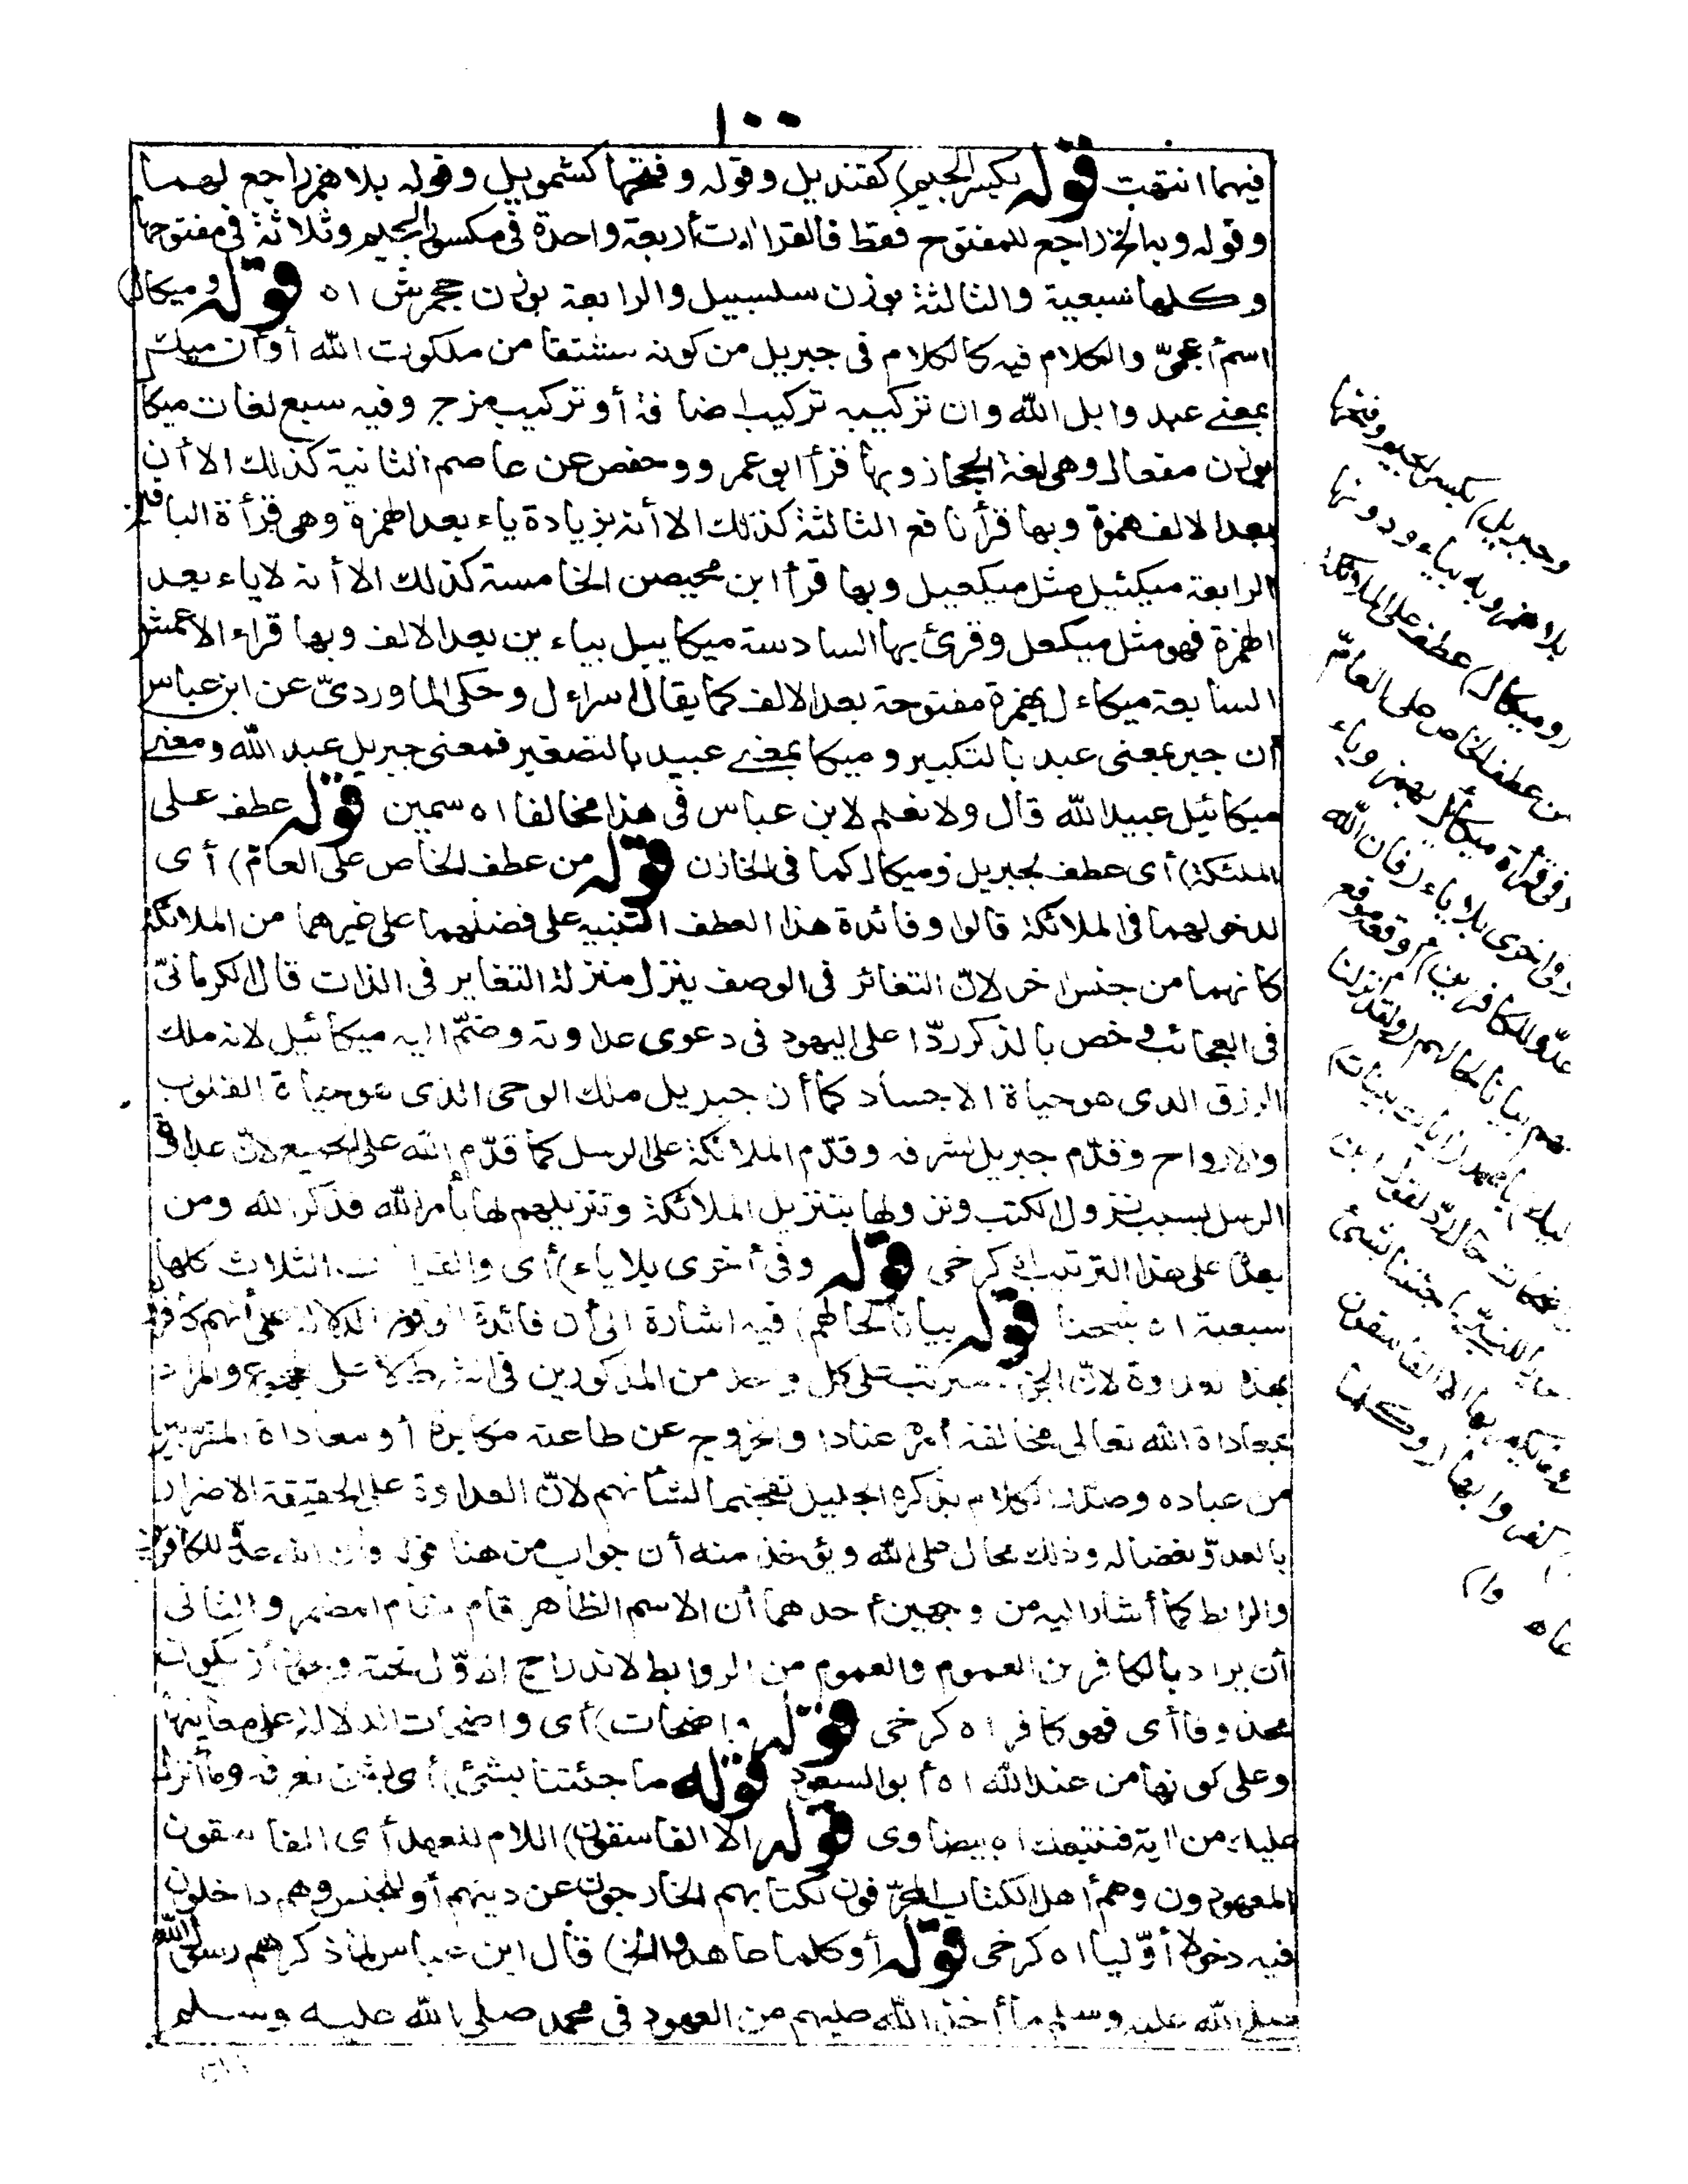 ١٠٠
فيهما انتهت قوله بكسر الجيم) كقنديل وقوله وفتحها كشمويل وقوله بلا همز راجع لهما
وقوله وبه الخ راجع للمفتوح فقط فالقراآت أربعة واحدة في مكسور الجيم وثلاثة في مفتوحها
وكلها سبعية والثالثة بوزن سلسبيل والرابعة بوزن جحمرش اه قوله وميكال)
اسم أعجميّ والكلام فيه كالكلام في جبريل من كونه مشتقا من ملكوت الله أو أن ميك
بمعنى عبد وايل الله وان تركيبه تركيب اضافة أو تركيب مزج وفيه سبع لغات ميكال
بوزن مفعال وهي لغة الحجاز وبها قرأ ابو عمرو وحفص عن عاصم الثانية كذلك الا أن
بعد الالف همزة وبها قرأ نافع الثالثة كذلك الا أنه بزيادة ياء بعد الهمزة وهي قرأة الباقين
الرابعة ميكئيل مثل ميكعيل وبها قرأ ابن محيصن الخامسة كذلك الا أنه لا ياء بعد
الهمزة فهو مثل ميكعل وقرئ بها السادسة ميكاييل بياء ين بعد الالف وبها قراء الاعمش
السابعة ميكاء ل بهمزة مفتوحة بعد الالف كما يقال اسراء ل وحكى الماورديّ عن ابن عباس
أن جبر بمعنى عبد بالتكبير وميكا بمعنى عبيد بالتصغير فمعنى جبريل عبد الله ومعنى
ميكائيل عبيد الله قال ولا نعلم لابن عباس في هذا مخالفا اه سمين قوله عطف على
الملئكة) أي عطف لجبريل وميكال كما في الخازن قوله من عطف الخاص على العامّ) أي
لدخولهما في الملائكة قالوا وفائدة هذا العطف التنبيه على فضلهما على غيرهما من الملائكة
كانهما من جنس اخر لانّ التغائر في الوصف ينزل منزلة التغاير في الذات قال الكرمانيّ
في العجائب وخص بالذكر ردّا على اليهود في دعوى عداوته وضمّ اليه ميكائيل لانه ملك
الرزق الذي هو حياة الاجساد كما أن جبريل ملك الوحي الذي هو حياة القلوب
والارواح وقدّم جبريل لشرفه وقدّم الملائكة على الرسل كما قدّم الله على الجميع لانّ عداوة
الرسل بسبب نزول الكتب ونزولها بتنزيل الملائكة وتنزيلهم لها بأمر الله فذكر الله ومن
بعده على هذا الترتيب اه كرخي قوله وفي أخرى بلا ياء) أي والقراآت الثلاث كلها
سبعية اه شيخنا قوله بيانا لحالهم) فيه اشارة الى أن فائدة الدلالة على أنهم كافرون
بهذه العداوة لانّ الجزاء مرتب على كل واحد من المذكورين في الشرط لا على المجموع والمراد
بمعاداة الله تعالى مخالفة أمره عنادا والخروج عن طاعته مكابرة أو معاداة المقربين
من عباده وصدّر الكلام بذكره الجليل تفخيما لشأنهم لانّ العداوة على الحقيقة الاضرار
بالعدوّ بغضا له وذلك محال على الله ويؤخذ منه أن جواب من هنا قوله فان الله عدوّ للكافرين
والرابط كما أشار اليه من وجهين أحدهما أن الاسم الظاهر قام مقام المضمر والثاني
أن يراد بالكافرين العموم والعموم من الروابط لاندراج الاوّل تحته ويجوز أن يكون
محذوفا أي فهو كافر اه كرخي قوله واضحات) أي واضحات الدلالة على معانيها
وعلى كونها من عند الله اه أبو السعود قوله ما جئتنا بشئ) أي بشئ نعرفه وما أنزل
عليك من اية فنتبعك اه بيضاوى قوله الا الفاسقون) اللام للعهد أي الفاسقون
المعهودون وهم أهل الكتاب المحرّفون لكتابهم الخارجون عن دينهم أو للجنس وهم داخلون
فيه دخولا أوّليا اه كرخي قوله أوكلما عاهدوا الخ) قال ابن عباس لما ذكرهم رسول الله
صلى الله عليه وسلم ما أخذ الله عليهم من العهود في محمد صلى الله عليه وسلم
وجبريل) بكسر الجيم وفتحها
بلا همز وبه بياء ودونها
(وميكال) عطف على الملائكة
من عطف الخاص على العامّ
وفي قرأة ميكائل بهمز وياء
وفي اخرى بلا ياء (فان الله
عدوّ للكافرين) أوقعه موقع
لهم بيانا لحالهم (ولقد أنزلنا
اليك) يا محمد (ايات بينات)
واضحات حال ردّ لقول ابن
صوريا للنبيّ) ما جئتنا بشئ
(وما يكفر بها الا الفاسقون)
كفروا بها (أوكلما
عاه دوا)